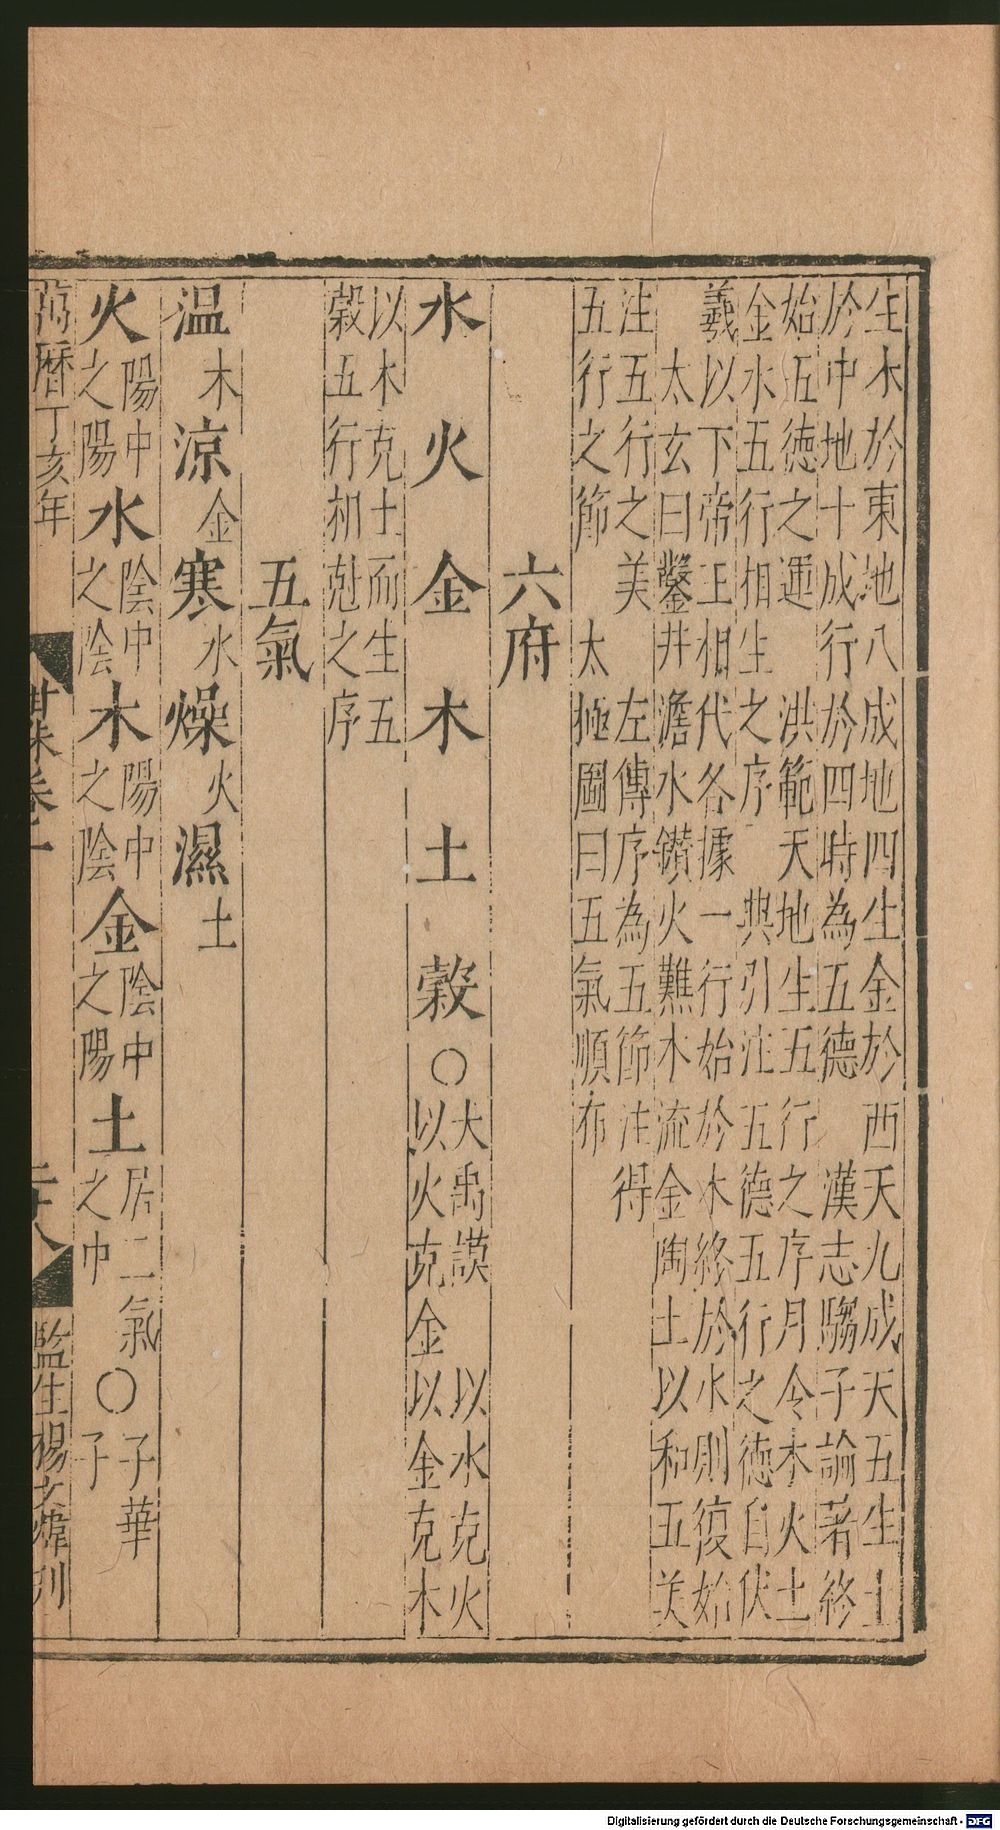 生木於東地八成地四生金於西天九成天五生土
於中地十成行於四時為五德　漢志騶子論著終
始五德之運　洪範天地生五行之序月令木火土
金水五行相生之序　與引注五德五行之德自伏
羲以下帝王相代各據一行始於木終於水則復始
太玄曰鑿井澹水鑽火難木流金陶土以和五美
注五行之美　左傳序為五節注得
五行之節　太極圖曰五氣順布
六府
水火金木土穀○大禹謨　以水克火
以火克金以金克木
以木克土而生五
穀五行相尅之序
五氣
温木涼金寒水燥火濕土
火陽中之陽水陰中之陰木陽中之陰金陰中之陽土居二氣之中○子華子
萬曆丁亥年
監生楊文煒刊
Digitalisierung gefördert durch die Deutsche Forschungsgemeinschaft - DFG